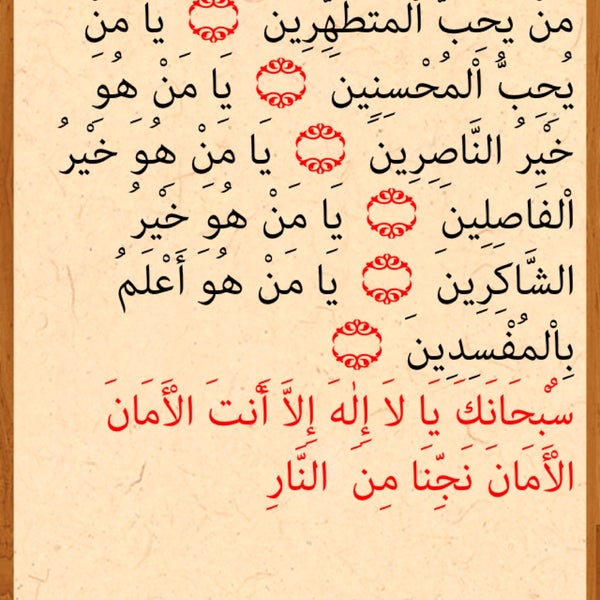 مَنْ يُحِبُّ اْلمُتَطَهِّرِينَ يَا مَنْ
يُحِبُّ اْلمُحْسِنِينَ يَا مَنْ هُوَ
خَيْرُ النَّاصِرِينَ يَا مَنْ هُوَ خَيْرُ
اْلفَاصِلِينَ يَا مَنْ هُوَ خَيْرُ
الشَّاكِرِينَ يَا مَنْ هُوَ أَعْلَمُ
بِاْلمُفْسِدِينَ
سُبْحَانَكَ يَا لاَ إِلٰهَ إِلاَّ أَنْتَ الْأَمَانَ
الْأَمَانَ نَجِّنَا مِنَ النَّارِ